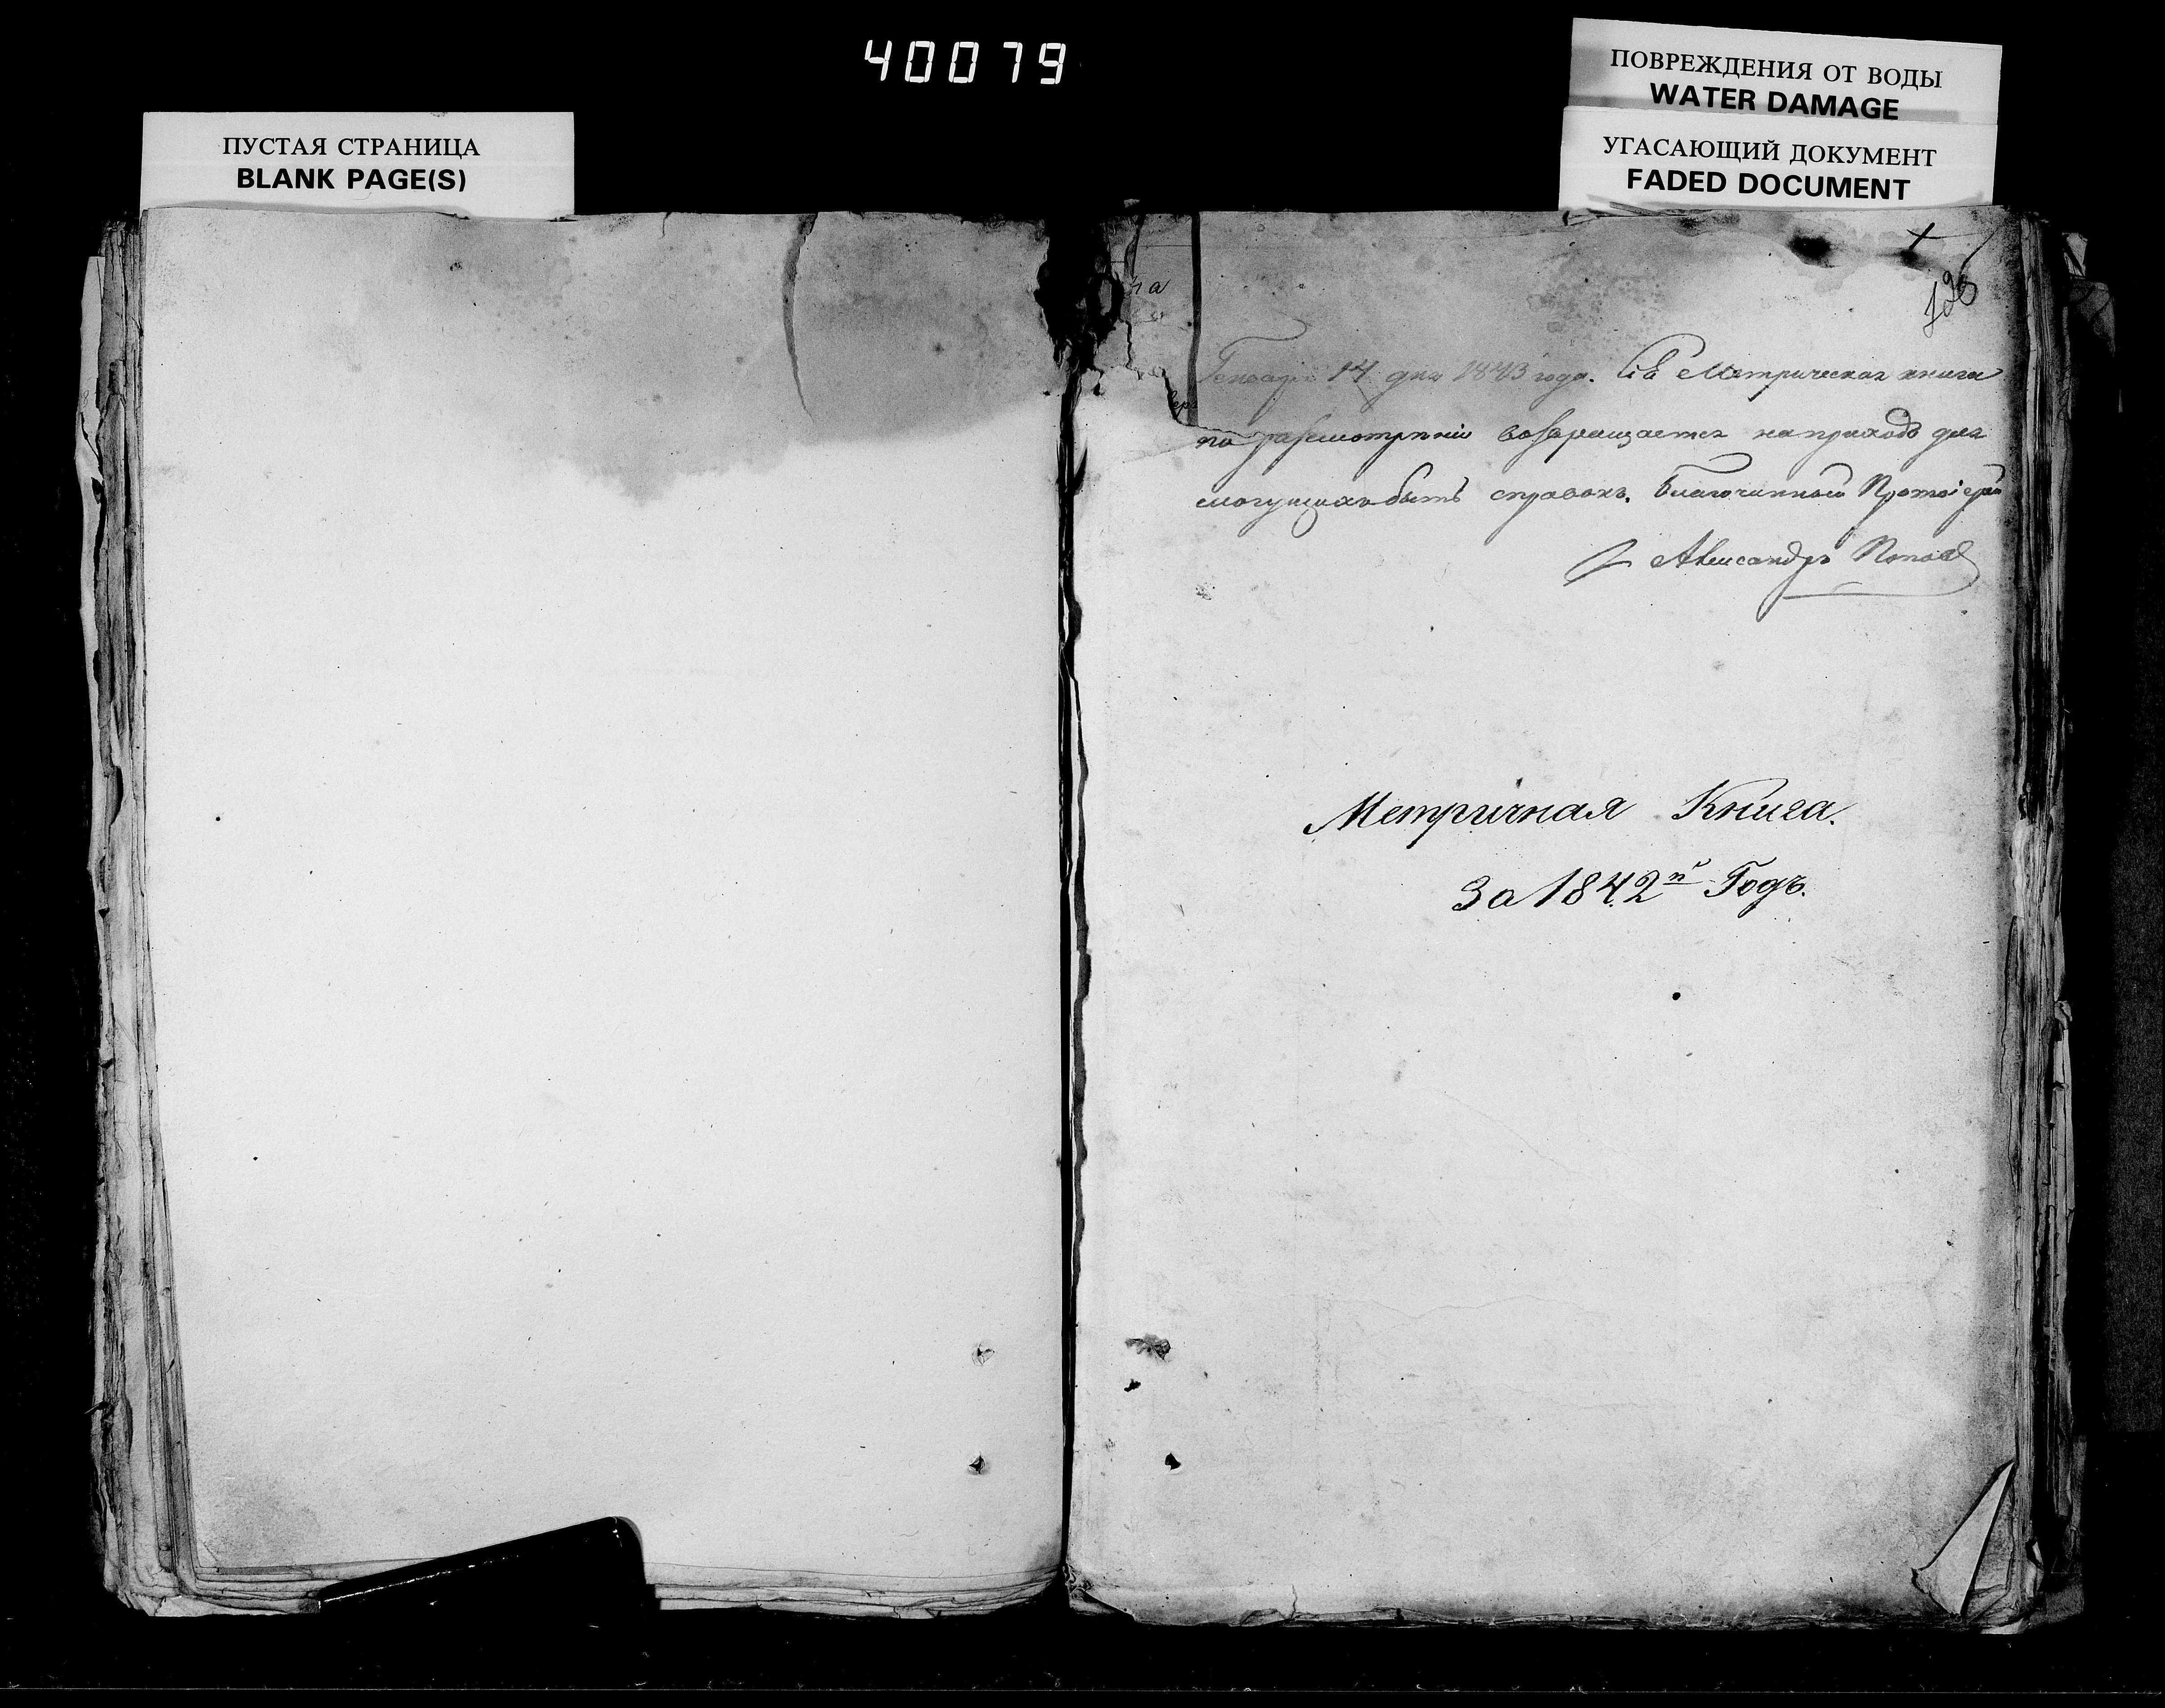 40079
ПУСТАЯ СТРАНИЦА
BLANK PAGE(S)
ПОВРЕЖДЕНИЯ ОТ ВОДЫ
WATER DAMAGE
УГАСАЮЩИЙ ДОКУМЕНТ
FADED DOCUMENT
Генваря 14 дня 1843 года. Сiя Метрическая книга
по разсмотрѣнiи возвращается на приходъ для
могущихъ быть справокъ. Благочинный Протоiерей
Александръ Попов
Метричная Книга.
За 1842й Годъ.